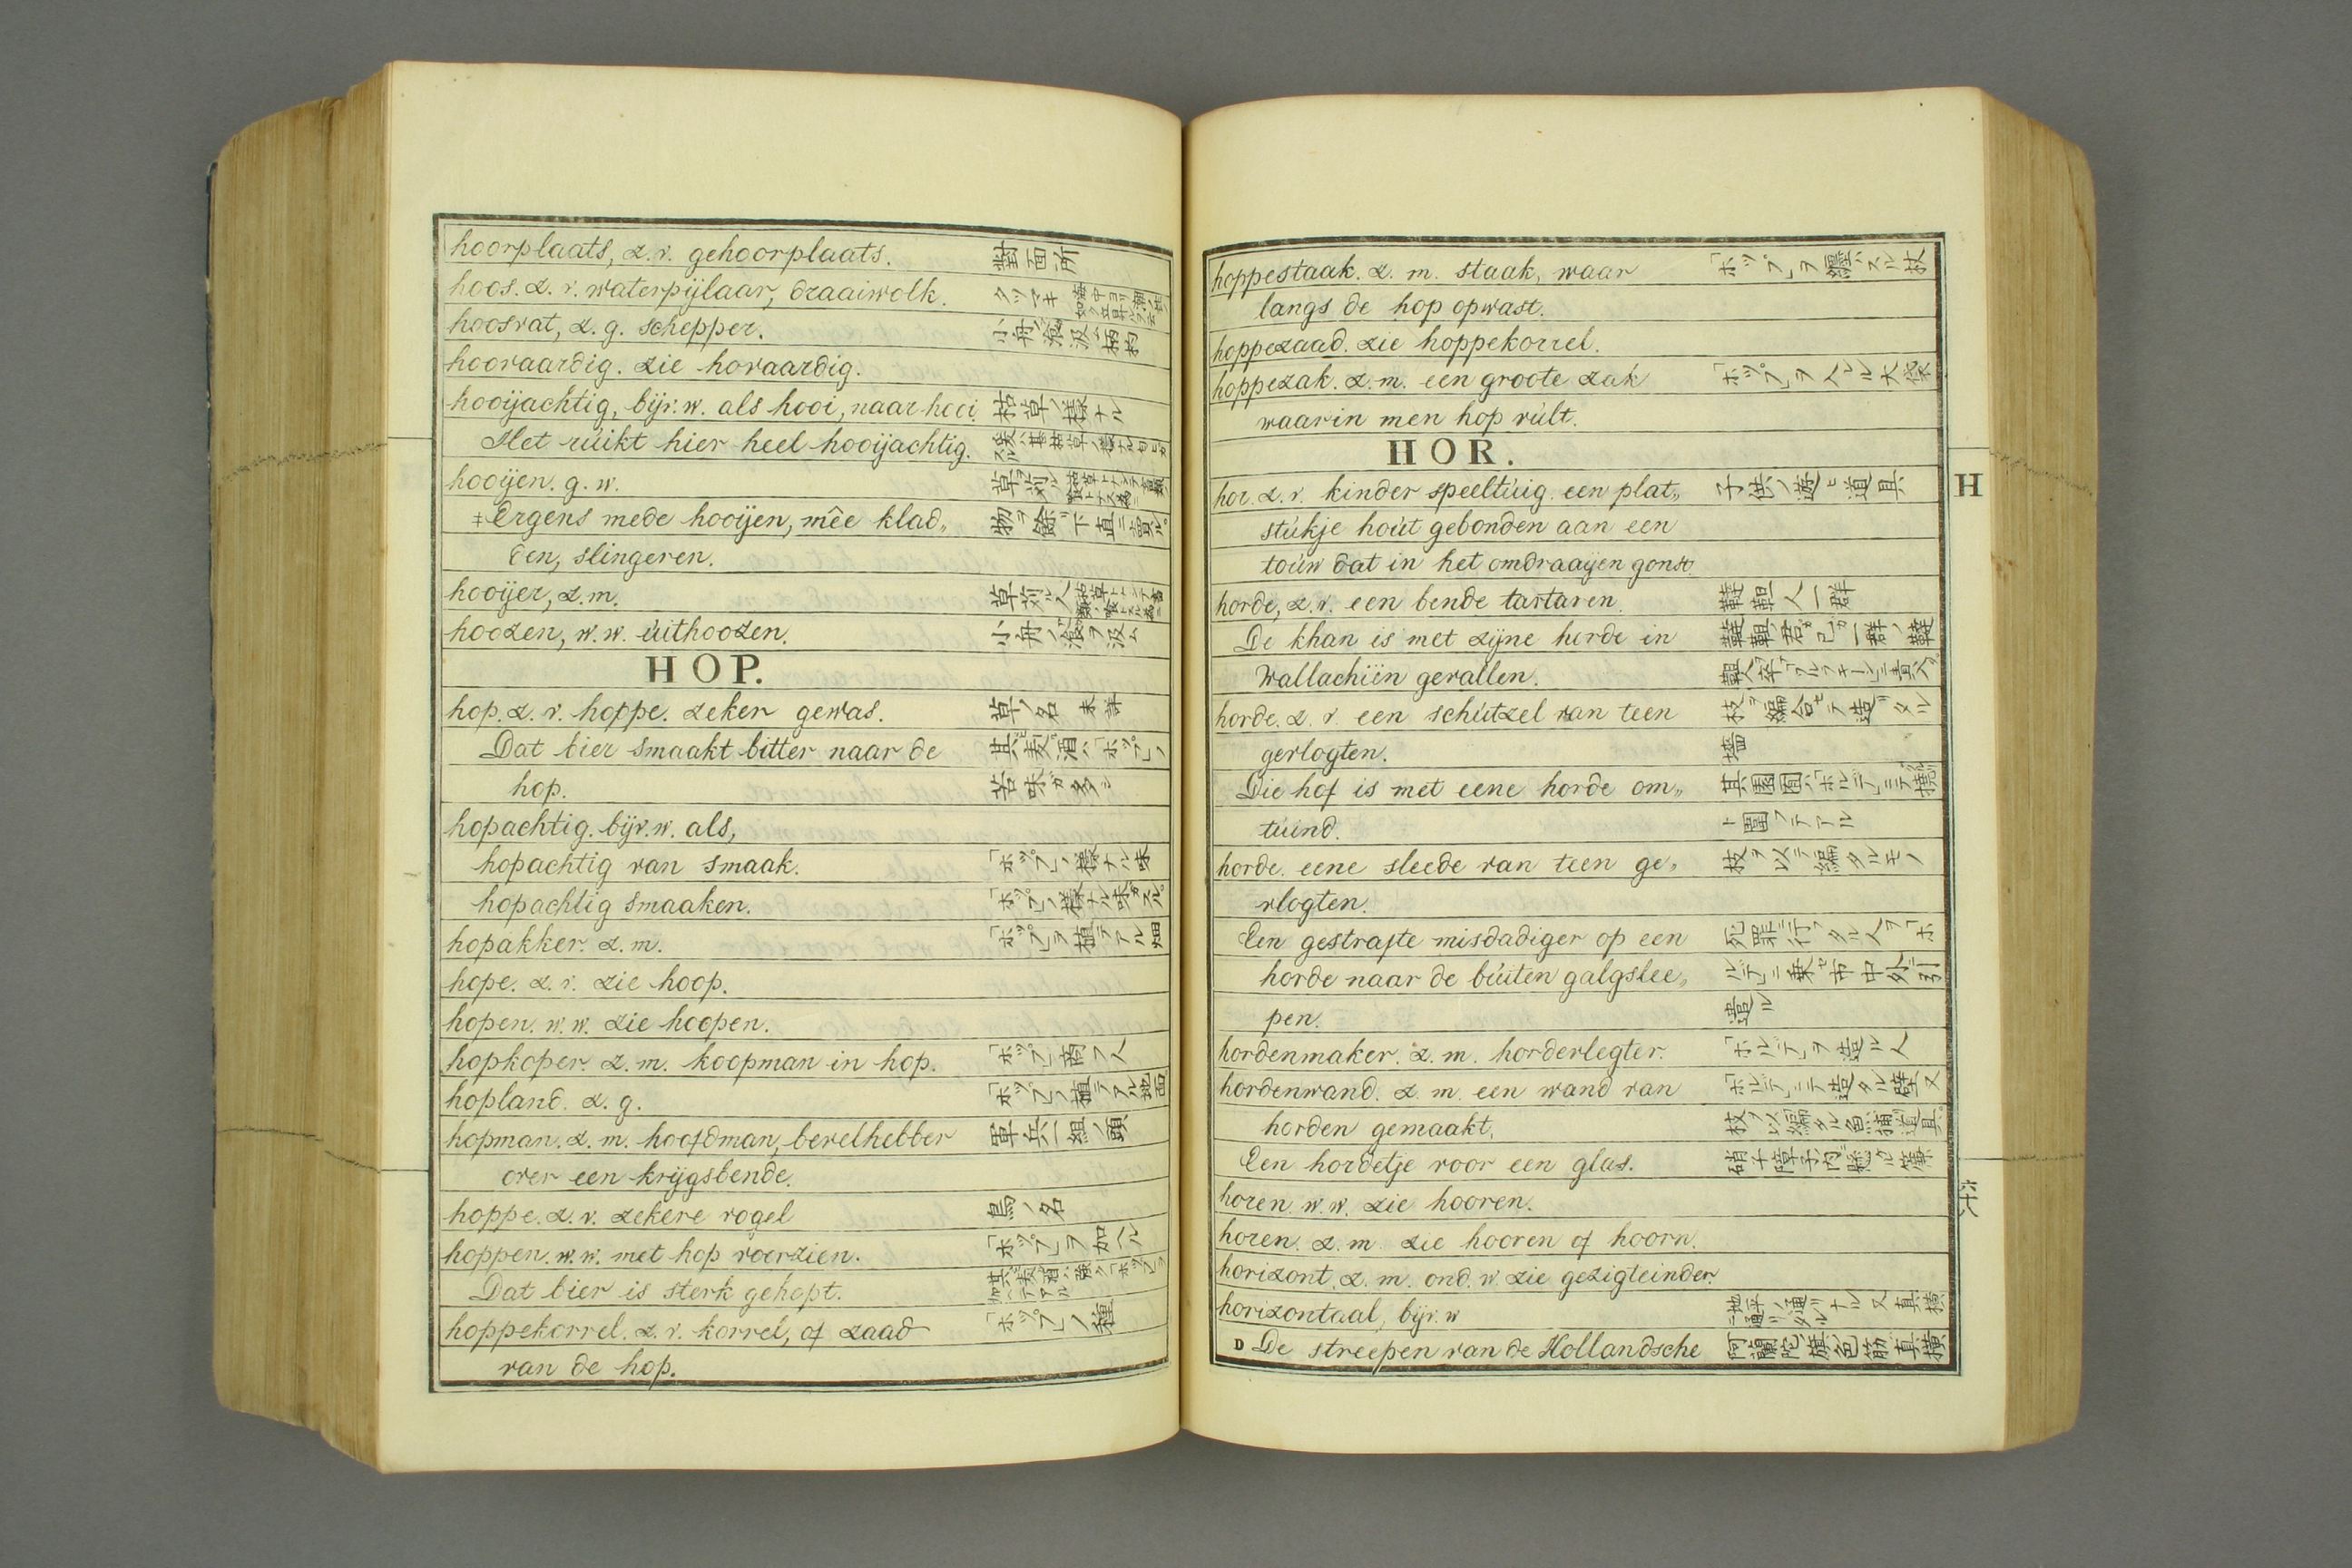 hoorplaats, z.v. gehoorplaats. 對面所
hoos. z.v. waterpijlaar, draaiwolk. タツマキ
hoosvat, z.g. schepper. 小舟ノ淦汲ム柄杓
hoovaardig. zie hovaardig.
hooijachtig, bijv.w. als hooi, naar hooi 枯草ノ様ナル
Het rúikt hier heel hooijachtig.
hooijen. g.w. 草ヲ苅ル
‡Ergens mede hooijen, mêe klad„ 物ヲ餘リ下直ニ賣ル
den, slingeren.
hooijer, z.m. 草ヲ苅ル人
hoozen, w.w. úithoozen. 小舟ノ淦ヲ汲ム
HOP.
hop. z.v. hoppe. zeker gewas. 草ノ名 未詳
Dat bier smaakt bitter naar de 其麦酒ハ「ホップ」ノ
hop. 苦味ガ多シ
hopachtig. bijv.w. als,
hopachtig van smaak. 「ホップ」ノ様ナル味
hopachtig smaaken. 「ホップ」ノ様ナル味ガスル
hopakker. z.m. 「ホップ」ヲ植テアル畑
hope. z.v. zie hoop.
hopen. w.w. zie hoopen.
hopkoper. z.m. koopman in hop. 「ホップ」商フ人
hopland. z.g. 「ホップ」ノ植テアル地面
hopman. z.m. hoofdman, bevelhebber 軍兵一組ノ頭
over een krijgsbende.
hoppe. z.v. zekere vogel 鳥ノ名
hoppen. w.w. met hop voorzien. 「ホップ」ヲ加ヘル
Dat bier is sterk gehopt. 其麦酒ハ強ク「ホップ」ヲ加ヘテアル
hoppekorrel. z.v. korrel, of zaad 「ホップ」ノ種
van de hop.
hoppestaak. z.m. staak, waar 「ホップ」ヲ纏ハスル杖
langs de hop opwast.
hoppezaad. zie hoppekorrel.
hoppezak. z.m. een groote zak 「ホップ」ヲ入ルル大袋
waarin men hop vúlt.
HOR.
H
hor. z.v. kinder speeltúig. een plat„ 子供ノ遊ヒ道具
stúkje hoút gebonden aan een
toúw dat in het omdraaijen gonst
horde, z.v. een bende tartaren. 韃靼人一群
De khan is met zijne horde in 韃靼ノ君ガ己ガ一群ノ韃
Wallachiën gevallen.
horde. z.v. een schútzel van teen 枝ヲ編合セテ造リタル
gevlogten. 墻
Die hof is met eene horde om„
túind. ト圍フテアル
horde. eene sleede van teen ge„ 枝ヲ以テ編タルモノ
vlogten.
Een gestrafte misdadiger op een 死罪ニ行フタル人ヲ「ホ
horde naar de búiten galgslee„ ルデ」ニ乗セ市中外ニ引
pen. 遣ル
hordenmaker. z.m. hordevlegter. 「ホルデ」ヲ造ル人
hordenwand. z.m. een wand van 「ホルデ」ニテ造タル壁 又
horden gemaakt. 枝ヲ以編タル魚捕道具
Een hordetje voor een glas. 硝子障子ノ内ニ懸クル簾
horen. w.w. zie hooren.
六十八
horen. z.m. zie hooren of hoorn.
horizont, z.m. ond.w. zie gezigteinder.
horizontaal, bijv.w 地平ノ通リナル 又真横ニ通リタル
D De streepen van de Hollandsche 阿蘭陀旗ノ色筋ハ真横